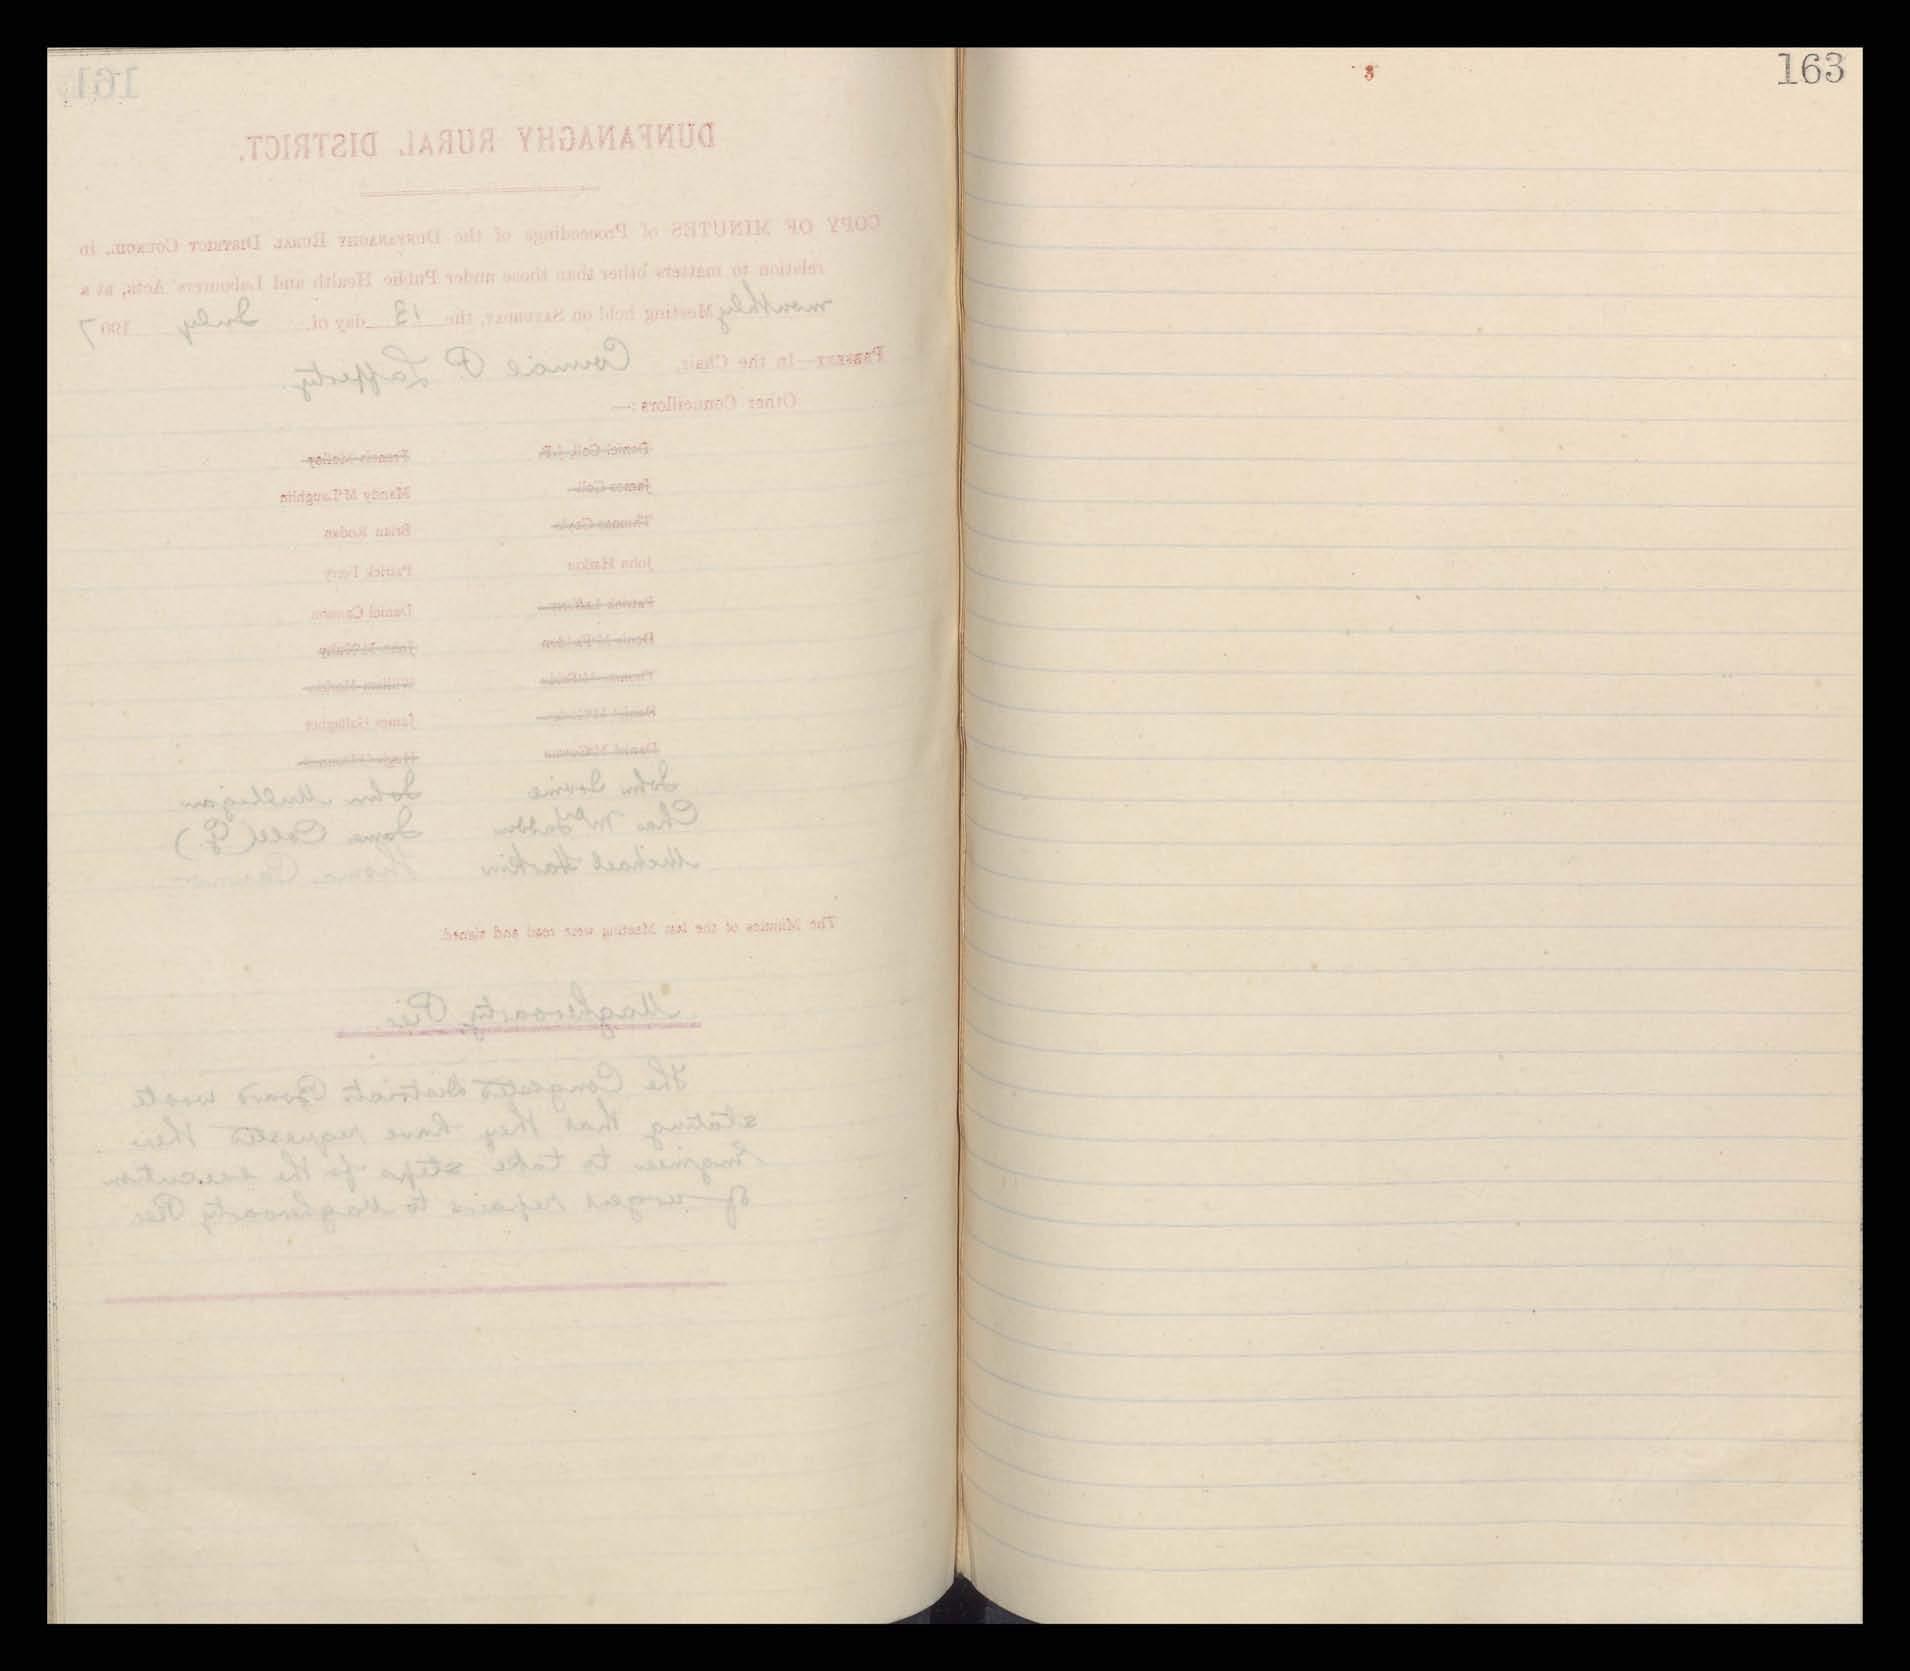 163
161
DUNFANAGHY RURAL DISTRICT.
COPY OF MINUTES of Proceedings of the DUNFANAGHY RURAL DISTRICT COUNCIL, in
relation to matters other than those under Public Health and Labourers' Acts, at a
monthly Meeting held on SATURDAY, the 13 day of July 1907
PRESENT—In the Chair, P. Lafferty.
Other Councillors:—
Daniel Coll, J.P.
James Coll
Thomas
John Harkin
Patrick
Denis McFadden
Daniel
Daniel
Francis Molloy
Manny McLaughlin
Brian Rodan
Patrick Ferry
Daniel
John
William
James Gallagher
John Irvine John Mulligan
Chas McFadden Coll (G)
Michael Harkin
The Minutes of the last Meeting were read and signed.
Magheroarty Pier
The Congested Districts Board wrote
stating that they have requested their
Engineer to take steps for the execution
of urgent repairs to Magheroarty Pier